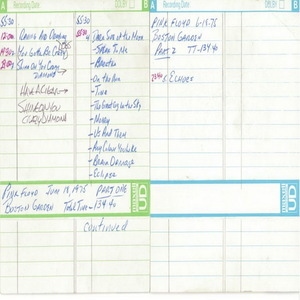 A Recording Date
DOLBY
B Recording Date
DOLBY
55:30
55:30
Raving And Drooling
You Gotta Be Crazy
Shine On You Crazy
Diamond →
Have A Cigar →
Shine On You
Crazy Diamond
Dark Side of the Moon
Speak To Me
Breathe
On the Run
Time
The Great Gig in the Sky
Money
Us And Them
Any Colour You Like
Brain Damage
Eclipse
Pink Floyd June 18, 1975 Part One
Boston Garden Total Time - 134:40
continued
UD
Pink Floyd 6-18-75
Boston Garden
Part 2 TT-134:40
Echoes
UD